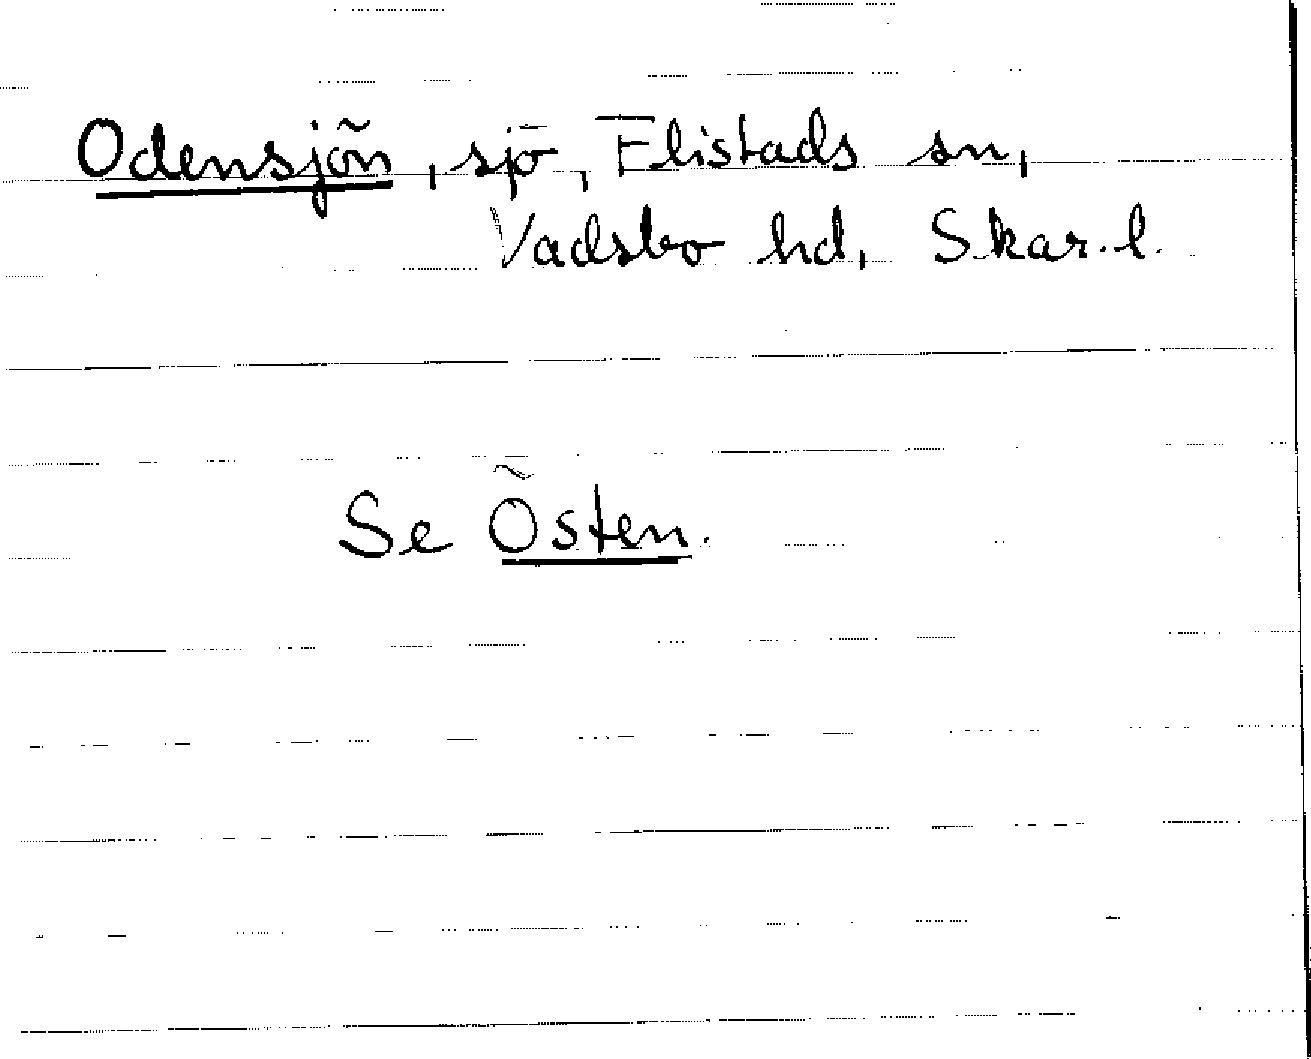 Odensjön, sjö, Flistads sn,
Vadsbo hd, Skar. l.
Se Östen.